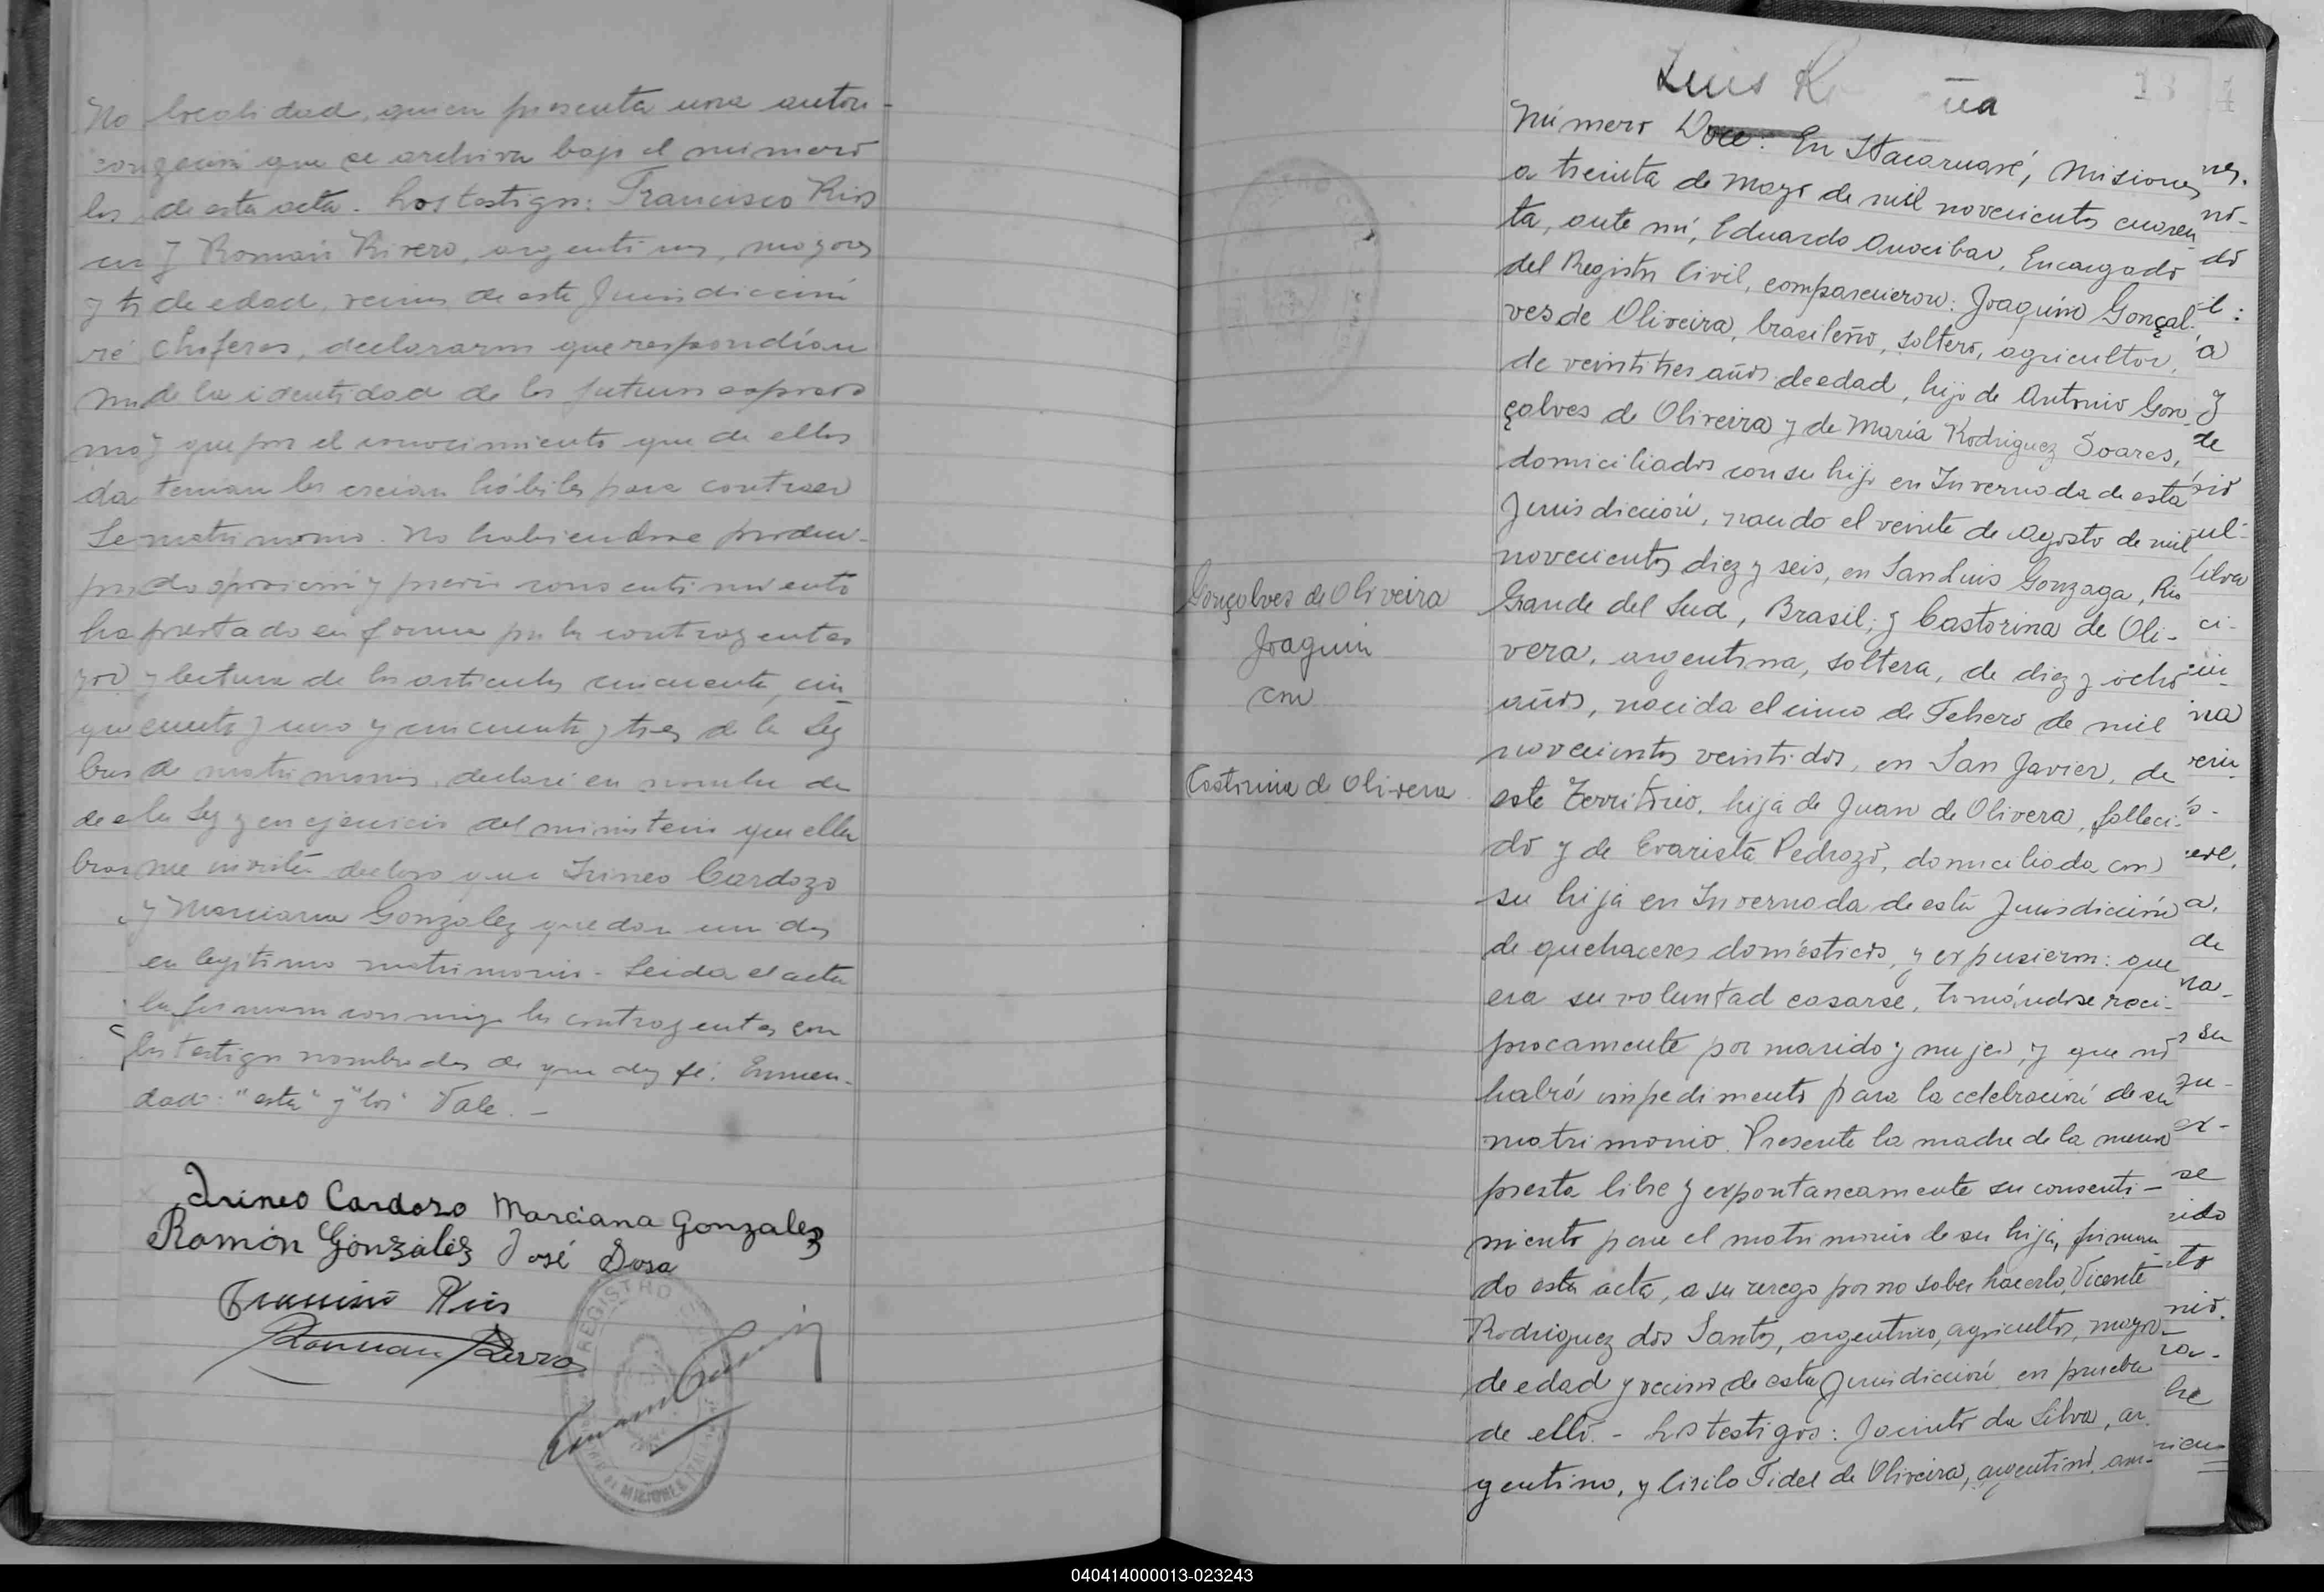 localidad, quien presenta una autori-
zación que se archiva bajo el número
de esta acta. Los testigos: Francisco Rios
y Román Rivero, argentinos, mayores
de edad, vecinos de esta Jurisdicción
Choferes, declararon que respondían
de la identidad de los futuros esposos
y que por el conocimiento que de ellos
tenian los creian hábiles para contraer
matrimonio. No habiendose produci-
do oposición y previo consentimiento
prestado en forma por los contrayentes
y lectura de los articulos cincuenta, cin-
cuenta y uno y cincuenta y tres de la Ley
de matrimonio, declaré en nombre de
la Ley y en ejercicio del ministerio que ella
me inviste declaro que Irineo Cardozo
y Marciana Gonzalez quedan unidos
en legitimo matrimonio. Leida el acta
la firmaron conmigo los contrayentes con
los testigos nombrados de que doy fé. Enmen-
dado: "esta" y "los" Vale.-
Irineo Cardozo Marciana Gonzalez
Ramón González José Sosa
Francisco Rios
Roman Rivero
REGISTRO
MISIONES
Luis
Número Doce: En Itacaruaré, Misiones
a treinta de Mayo de mil novecientos cuaren-
ta, ante mí, Eduardo Anocibar, Encargado
del Registro Civil, comparecieron: Joaquim Gonçal-
ves de Oliveira, brasileño, soltero, agricultor,
de veintitres años de edad, hijo de Antonio Gon-
çalves de Oliveira y de María Rodriguez Soares,
domiciliados con su hijo en Invernada de esta
Jurisdicción, nacido el veinte de Agosto de mil
novecientos diez y seis, en San Luis Gonzaga, Rio
Grande del Sud, Brasil; y Castorina de Oli-
vera, argentina, soltera, de diez y ocho
años, nacida el cinco de Febrero de mil
novecientos veintidos, en San Javier, de
este Territorio, hija de Juan de Olivera, falleci-
do y de Evarista Pedrozo, domiciliada con
su hija en Invernada de esta Jurisdicción
de quehaceres domésticos, y expusieron: que
era su voluntad casarse, tomándose reci-
procamente por marido y mujer, y que no
habrá impedimento para la celebración de su
matrimonio. Presente la madre de la menor
presta libre y expontaneamente su consenti-
miento para el matrimonio de su hija, firman-
do esta acta, a su ruego por no saber hacerlo, Vicente
Rodriguez dos Santos, argentino, agricultor, mayor
de edad y vecino de esta Jurisdicción en prueba
de ello. - Los testigos: Jacinto da Silva, ar-
gentino, y Cirilo Fidel de Oliveira, argentino, am-
Gonçalves de Oliveira
Joaquin
con
Castorina de Olivera
040414000013-023243